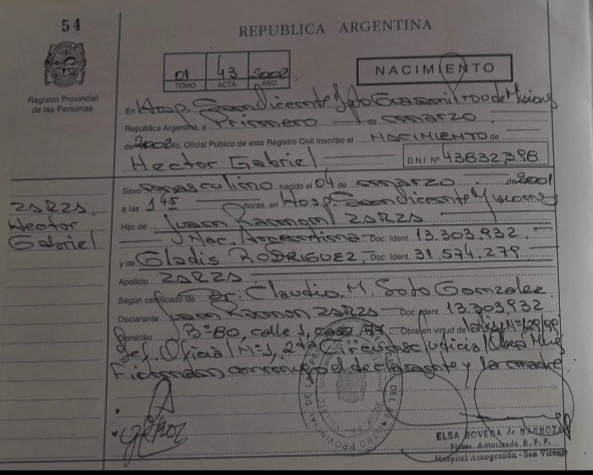 54
REPUBLICA ARGENTINA
Registro Provincial
de las Personas
01 43 2002
TOMO ACTA AÑO
NACIMIENTO
En Hosp. San Vicente Dpto Guaraní Prov de Misiones
República Argentina, a Primero de marzo
de 2002 Yo, Oficial Público de este Registro Civil inscribo el NACIMIENTO de
Hector Gabriel D.N.I. Nº 43832398
Sexo masculino nacido el 04 de marzo de 2001
a las 1 45 horas, en Hosp San Vicente Misiones
Hijo de Juan Ramon ZARZA
Nac. Argentina Doc. Ident. 13.303.932
y de Gladis RODRIGUEZ Doc. Ident. 31.574.279
Apellido ZARZA
Según certificado de Dr. Claudio M. Soto Gonzalez
Declarante Juan Ramon ZARZA Doc. Ident. 13.303.932
Domicilio Bº 80, calle 1, casa Obra en virtud de
Def. Oficial Nº 1, 2da
Firmando conmigo el declarante y la madre
ZARZA
Hector
Gabriel
ELSA BOVERA de BARBOZA
Firma Autorizada R. P. P.
Hospital Autogestión - San Vicente